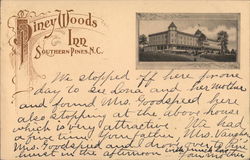 Piney Woods
Inn
Southern Pines, N.C.
We stopped off here for one
day to see Lora and her mother
and found Mrs. Goodspeed here
also stopping at the above house
which is very attractive. We had
a fine time. Your father, Mrs. Vaughn
Mrs. Goodspeed and I drove over to Pine
hurst in the afternoon